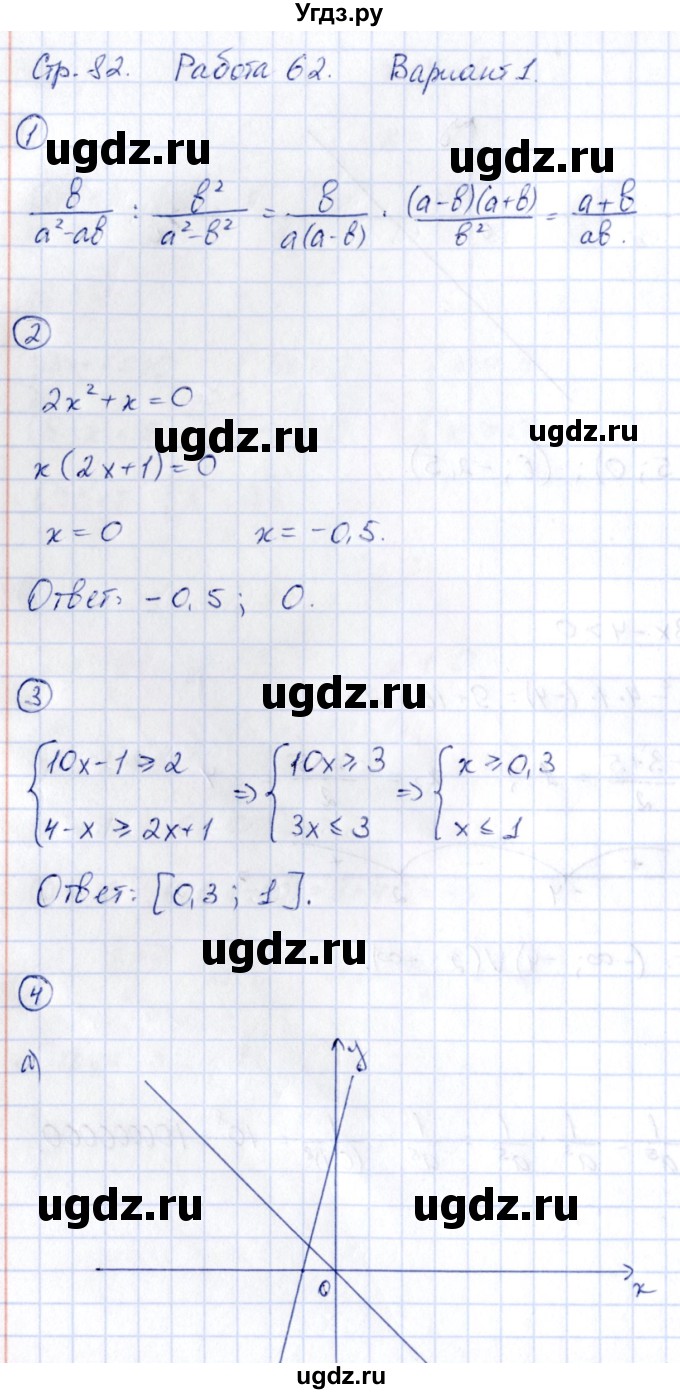 Угдз.ру
Стр. 82. Работа 62. Вариант 1.
1
ugdz.ru ugdz.ru
в/(a²-aв) : в²/(a²-в²) = в/(a(a-в)) · (a-в)(a+в)/в² = (a+в)/(aв).
2
2x²+x=0
ugdz.ru
x(2x+1)=0
x=0 x=-0,5.
Ответ: -0,5; 0.
3
ugdz.ru
{10x-1≥2 ⇒ {10x≥3 ⇒ {x≥0,3
{4-x≥2x+1 {3x≤3 {x≤1
Ответ: [0,3; 1].
ugdz.ru
4
а) y
ugdz.ru ugdz.ru
0 x
ugdz.ru